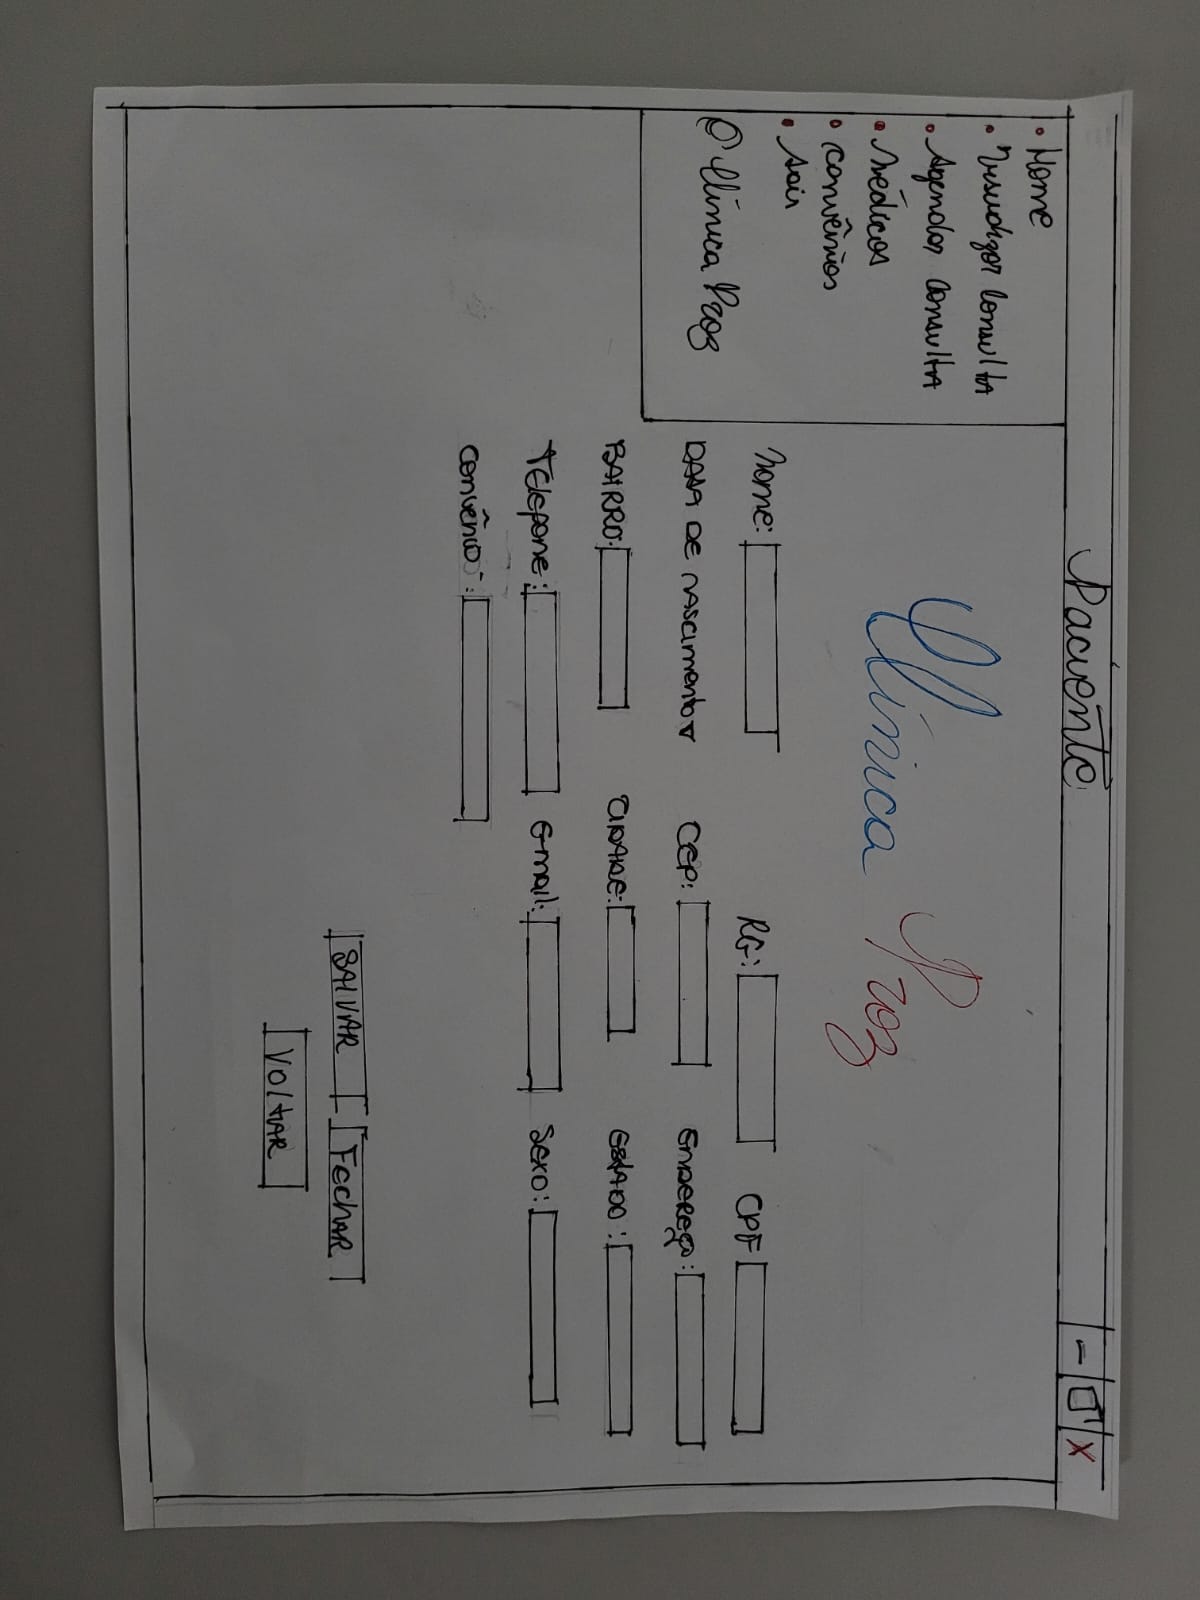 Paciente
- □ X
• Home
• Visualizar consulta
• Agendar consulta
• Médicos
• convênios
• Sair
Clínica Proz
Clínica Proz
Nome: RG: CPF
DATA DE NASCIMENTO ▿ CEP: Endereço:
BAIRRO: CIDADE: ESTADO:
Telefone: Email: Sexo:
convênio:
SALVAR Fechar
VOLTAR